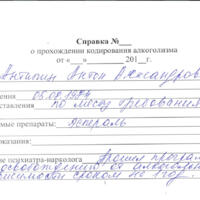 Справка №___
о прохождении кодирования алкоголизма
от «___» ________ 201__г.
Антипин Антон Александров
ения 05.08.19
ставления по месту требования
мые препараты: Эспераль
оказания:
е психиатра-нарколога Прошел програм
освобождению от алкогольн
висимости сроком на 1 год.